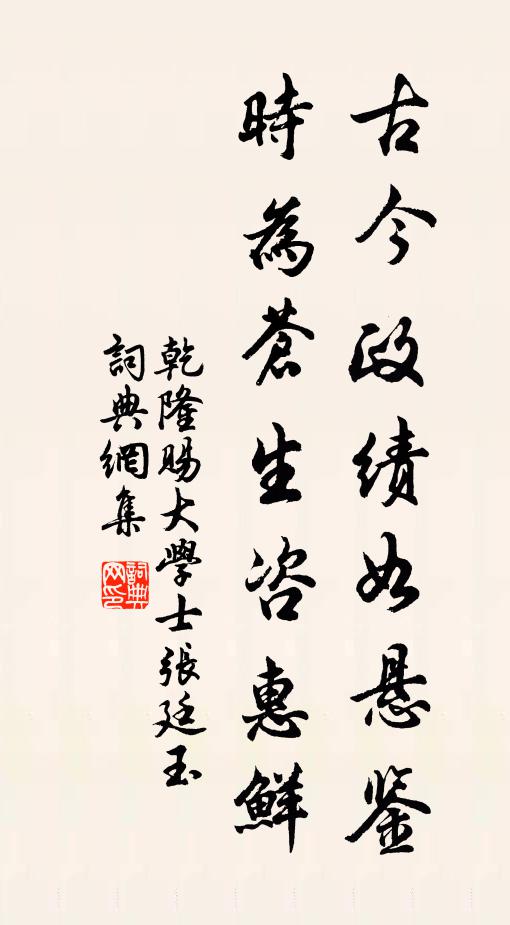 古今政绩如悬鉴
時為蒼生咨惠鮮
乾隆賜大學士張廷玉
詞典網集
詞典网印